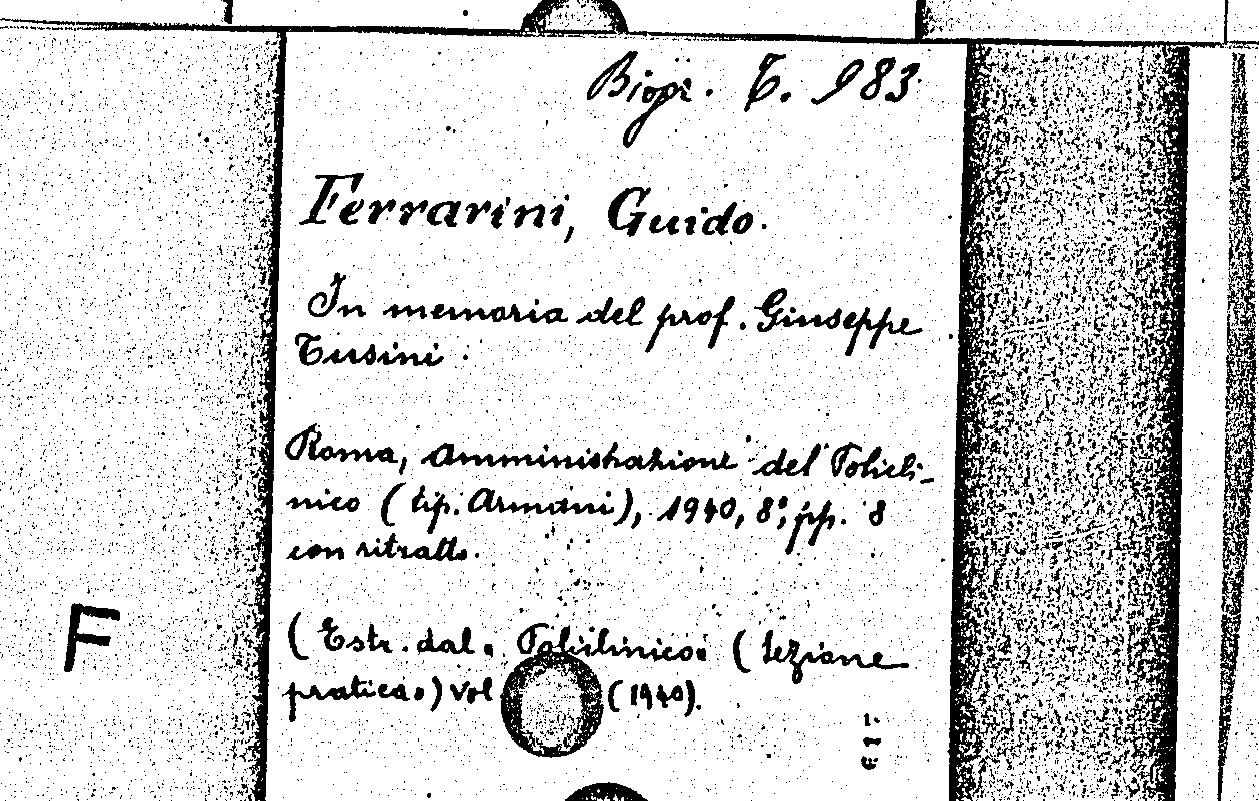 Biogr. T. 983
Ferrarini, Guido.
In memoria del prof. Giuseppe
Tusini.
Roma, Amministrazione del Policli-
nico (tip. Armani), 1940, 8°, pp. 8
con ritratto.
(Estr. dal "Policlinico" (sezione
pratica") vol. (1940).
F